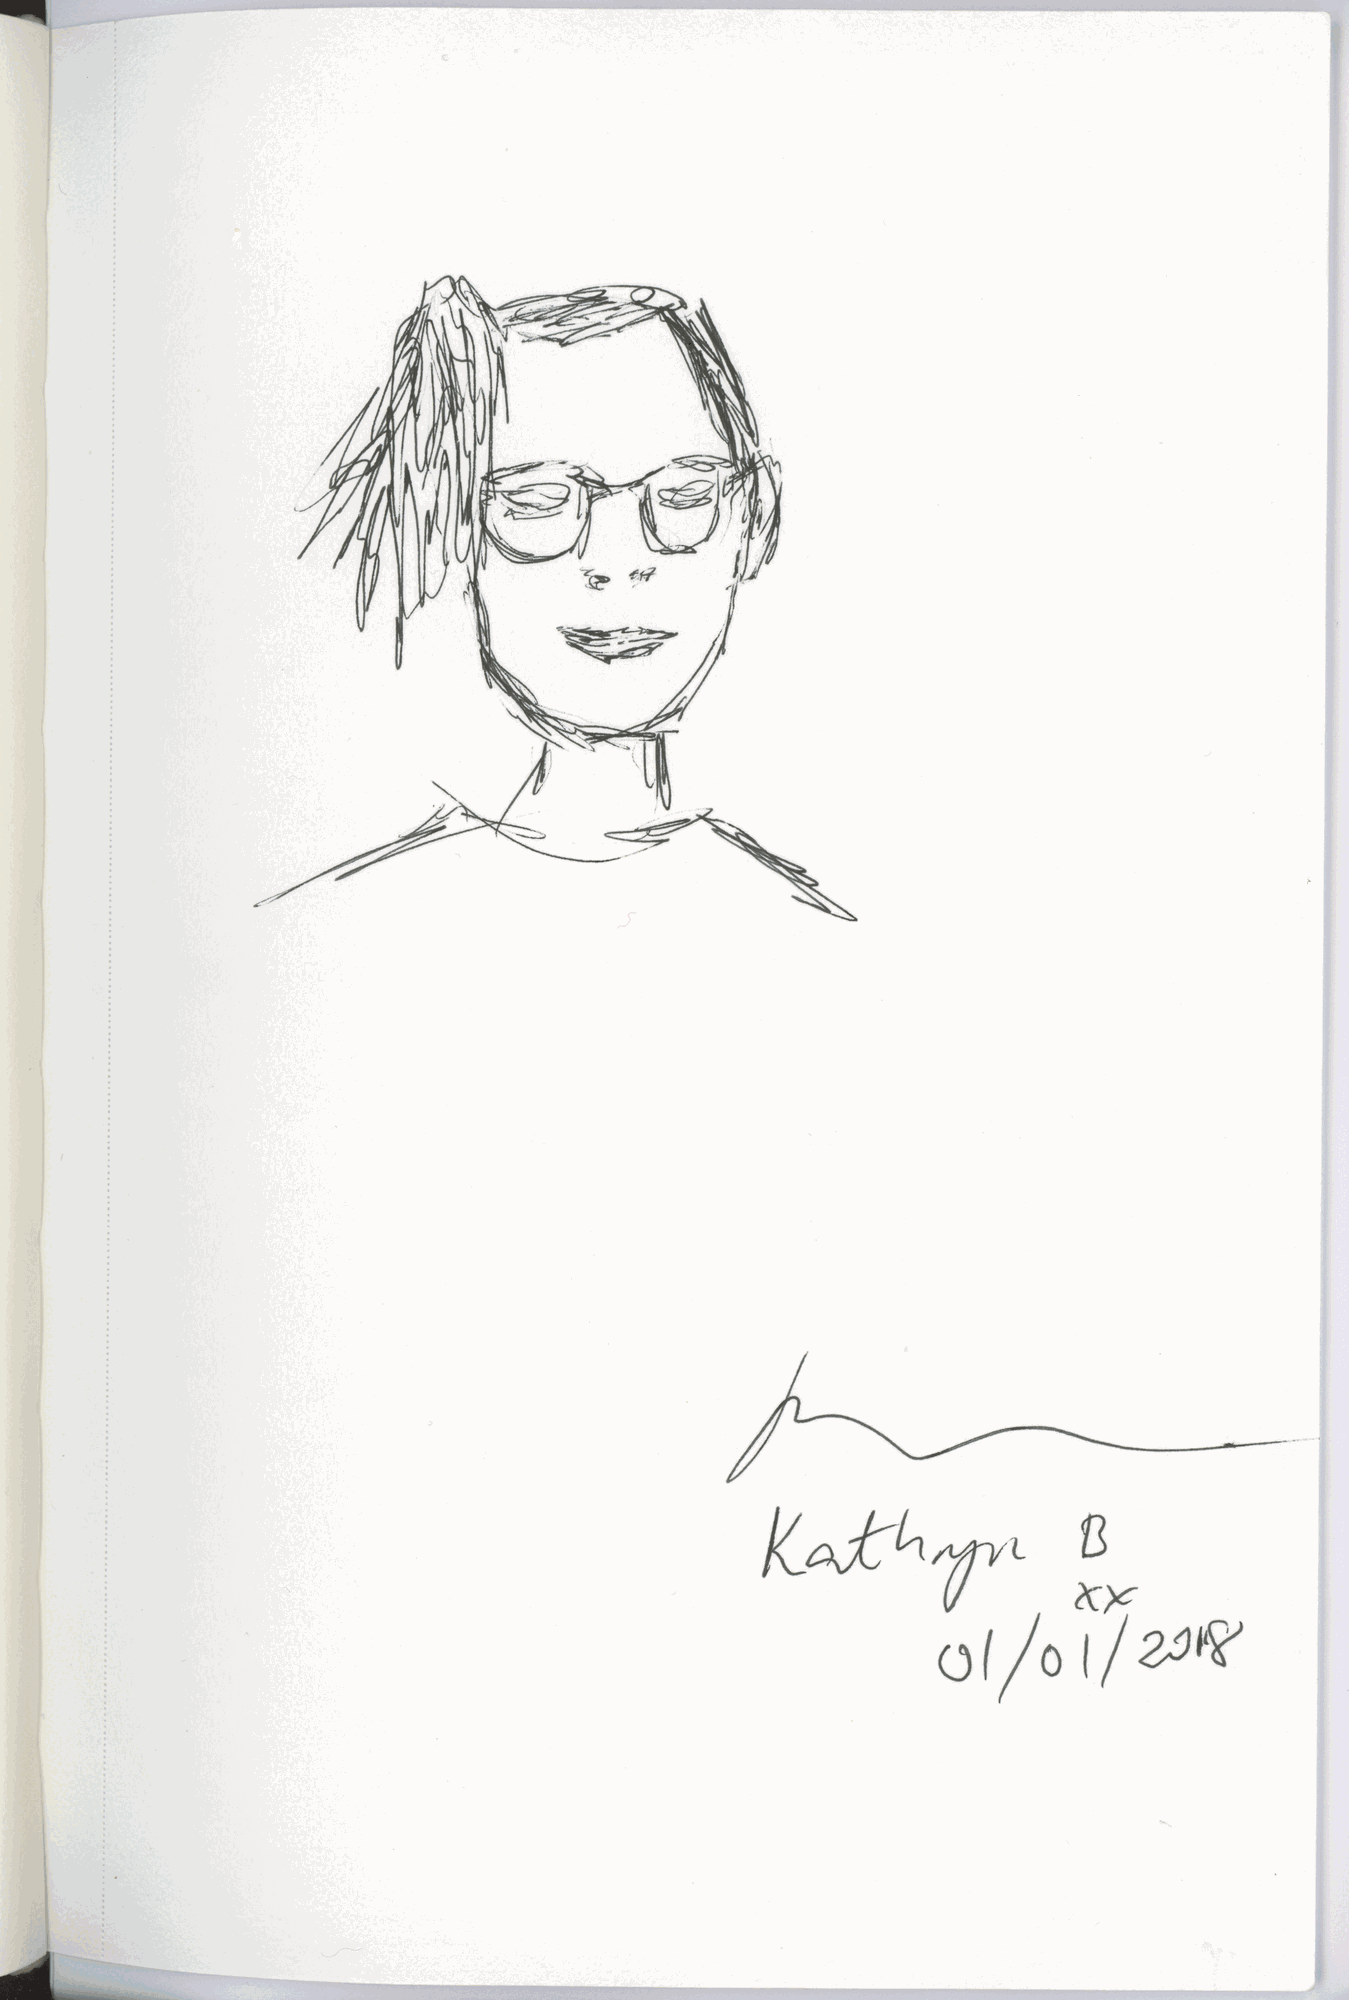 Kathryn B
xx
01/01/2018